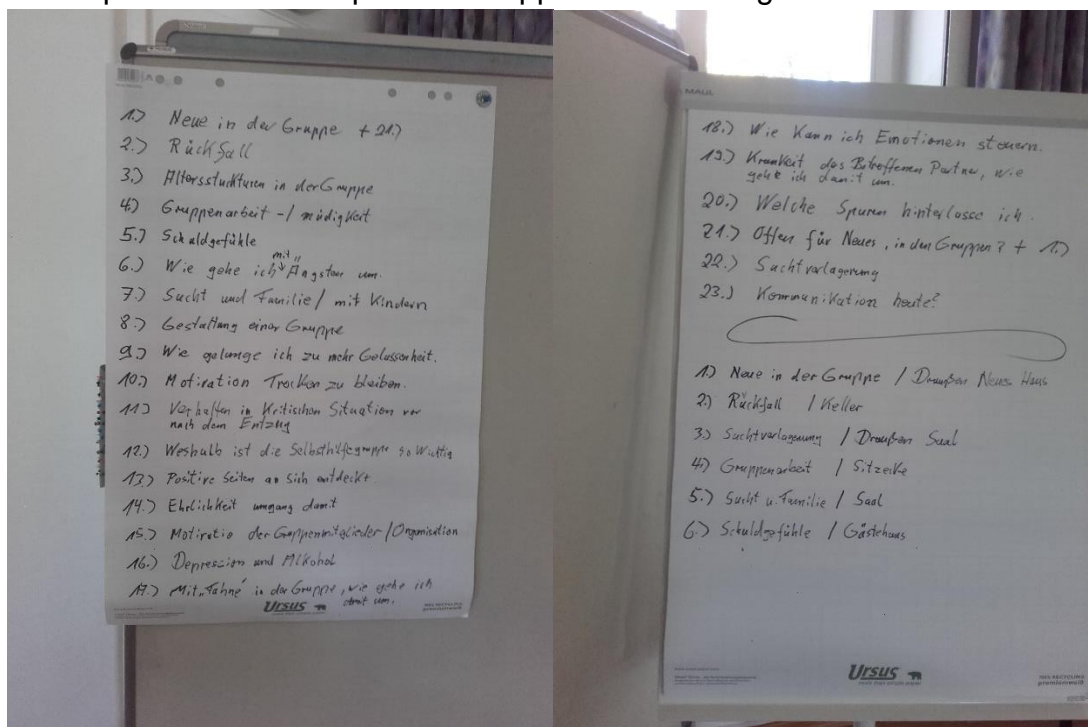 1.) Neue in der Gruppe + 21.)
2.) Rückfall
3.) Altersstukturen in der Gruppe
4.) Gruppenarbeit -/ müdigkeit
5.) Schuldgefühle
6.) Wie gehe ich mit Ängsten um.
7.) Sucht und Familie / mit Kindern
8.) Gestaltung einer Gruppe
9.) Wie gelange ich zu mehr Gelassenheit.
10.) Motivation Trocken zu bleiben.
11.) Verhalten in Kritischen Situation vor
nach dem Entzug
12.) Weshalb ist die Selbsthilfegruppe so Wichtig
13.) Positive Seiten an sich entdeckt.
14.) Ehrlichkeit umgang damit
15.) Motivatio der Gruppenmitglieder / Organisation
16.) Depression und Alkohol
17.) Mit „Fahne" in der Gruppe, wie gehe ich
damit um.
Ursus
MAUL
18.) Wie Kann ich Emotionen steuern.
19.) Krankeit des Betroffenen Partner, wie
gehe ich damit um.
20.) Welche Spuren hinterlasse ich.
21.) Offen für Neues, in den Gruppen? + 1.)
22.) Suchtverlagerung
23.) Kommunikation heute?
1.) Neue in der Gruppe / Draußen Neues Haus
2.) Rückfall / Keller
3.) Suchtverlagerung / Draußen Saal
4.) Gruppenarbeit / Sitzecke
5.) Sucht u. Familie / Saal
6.) Schuldgefühle / Gästehaus
Ursus
100% RECYCLING
premiumweiß